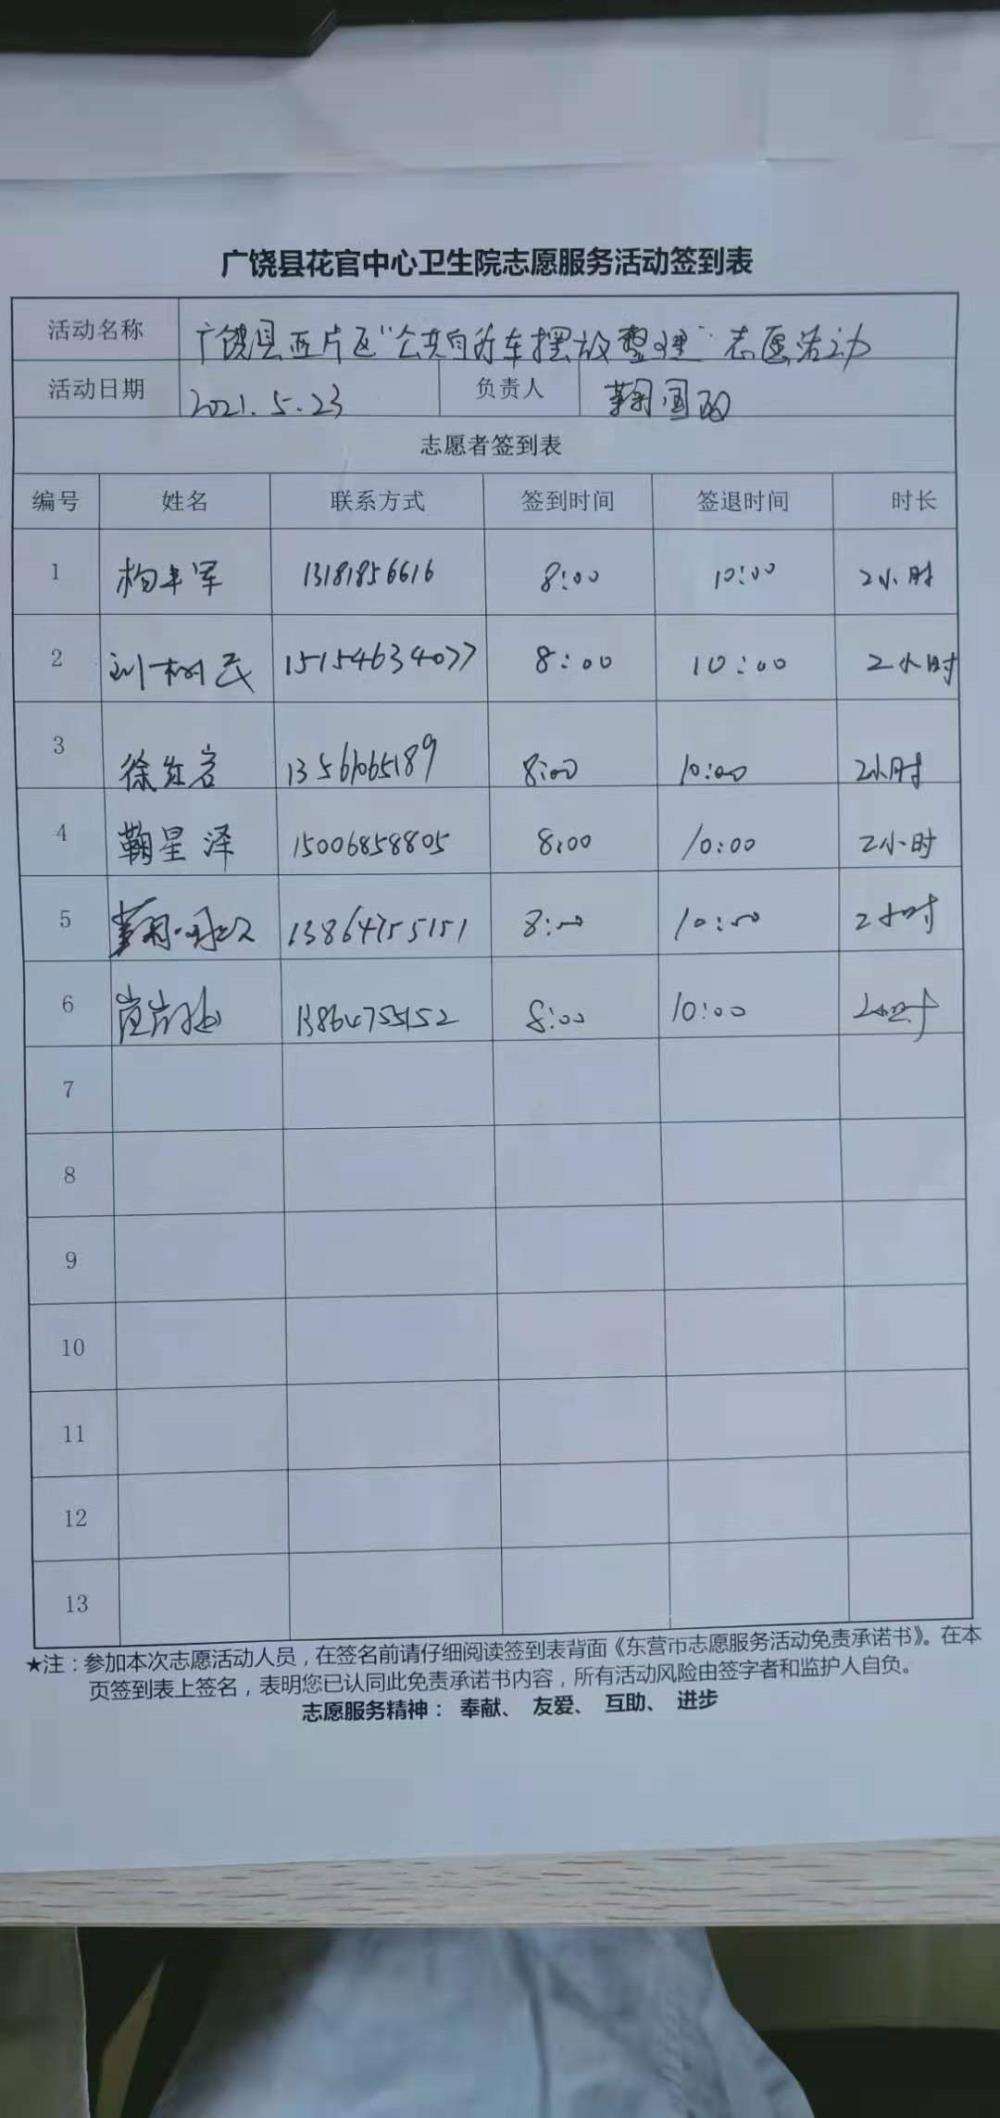 广饶县花官中心卫生院志愿服务活动签到表
活动名称 广饶县西片区“公共自行车摆放整理”志愿活动
活动日期 2021.5.23 负责人 鞠国
志愿者签到表
编号 姓名 联系方式 签到时间 签退时间 时长
1 杨军 13181856616 8:00 10:00 2小时
2 刘树民 15154634077 8:00 10:00 2小时
3 徐红岩 13561065189 8:00 10:00 2小时
4 鞠星泽 15006858805 8:00 10:00 2小时
5 13864755151 8:00 10:00 2小时
6 13864755152 8:00 10:00 2小时
7
8
9
10
11
12
13
★注：参加本次志愿活动人员，在签名前请仔细阅读签到表背面《东营市志愿服务活动免责承诺书》。在本
页签到表上签名，表明您已认同此免责承诺书内容，所有活动风险由签字者和监护人自负。
志愿服务精神： 奉献、 友爱、 互助、 进步